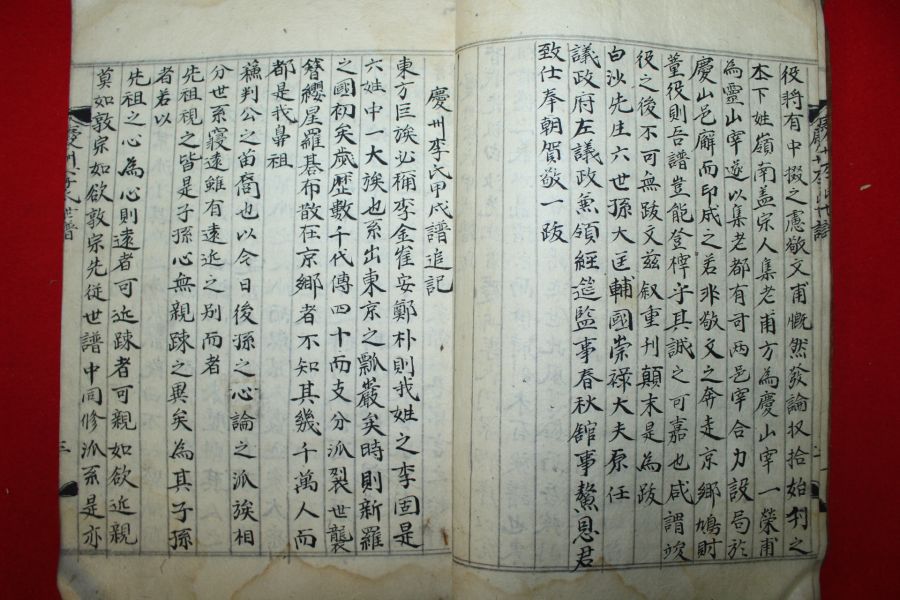 役將有中掇之慮敬文甫慨然發論収拾始刊之
本下姓嶺南盖宗人集老甫方為慶山宰一榮甫
為靈山宰遂以集老都有司两邑宰合力設局於
慶山邑廨而印成之若非敬文之奔走京鄉鳩財
董役則吾譜豈能登梓乎其誠之可嘉也咸謂竣
役之後不可無跋文玆叙重刊顛末是為跋
白沙先生六世孫大匡輔國崇祿大夫原任
議政府左議政兼領經筵監事春秋館事鰲恩君
致仕奉朝賀敬一跋
慶州李氏甲戌譜追記
東方巨族必稱李金崔安鄭朴則我姓之李固是
六姓中一大族也系出東京之瓢巖矣時則新羅
之國初矣歲歷數千代傳四十而支分派裂世襲
簪纓星羅碁布散在京鄉者不知其幾千萬人而
都是我鼻祖
稱判公之苗裔也以今日後孫之心論之派族相
分世系寢遠雖有遠近之別而者
先祖視之皆是子孫心無親踈之異矣為其子孫
者若以
先祖之心為心則遠者可近踈者可親如欲近親
莫如敦宗如欲敦宗先從世譜中同修派系是亦
慶州李氏世譜
三